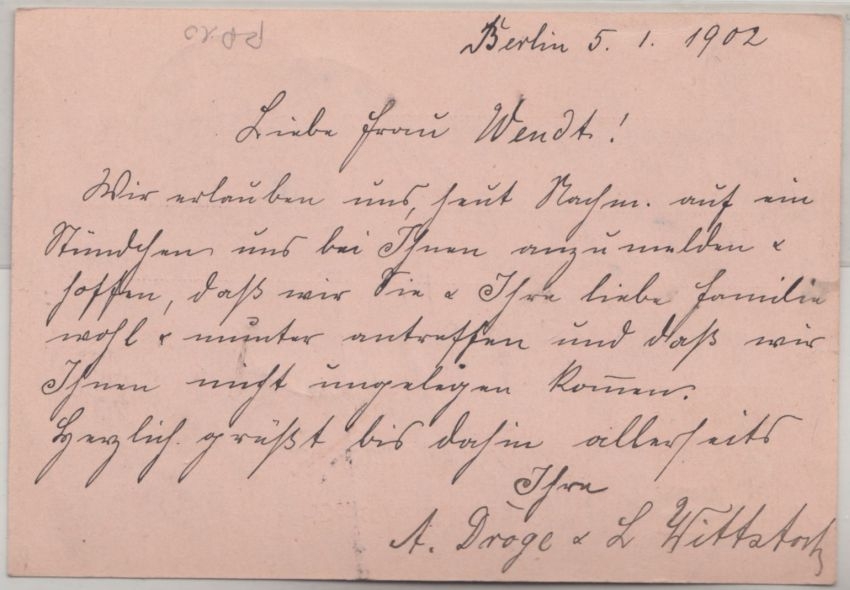 Berlin 5. 1. 1902
Liebe Frau Wendt!
Wir erlauben uns, heut Nachm. auf ein
Stündchen uns bei Ihnen anzumelden &
hoffen, daß wir Sie & Ihre liebe Familie
wohl & munter antreffen und daß wir
Ihnen nicht ungelegen kom̄en.
Herzlich grüßt bis dahin allerseits
Ihre
A. Dröge & L Wittstock